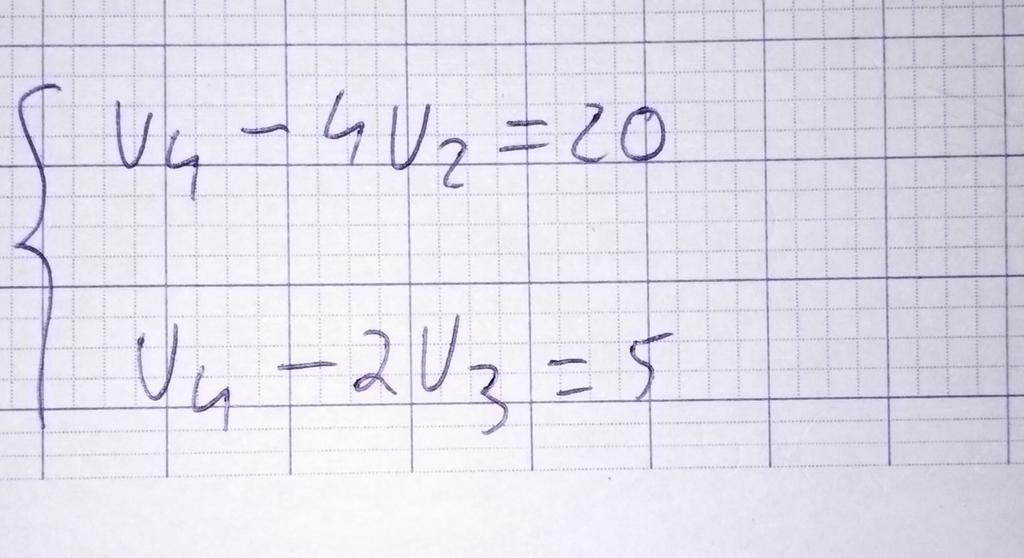 V₄ - 4V₂ = 20
V₄ - 2V₃ = 5